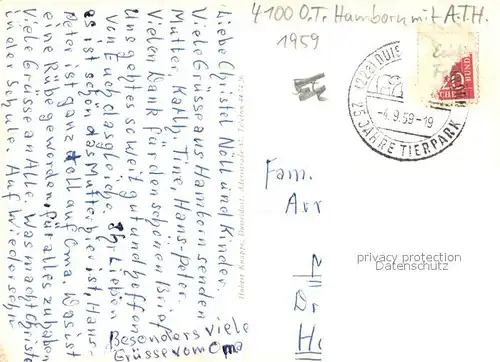 4100 O.T. Hamborn mit A.T.H.
1959
Liebe Christel Nöll und Kinder.
Viele Grüsse aus Hamborn senden
Mutter. Kathy, Tine, Hans-Peter.
Vielen Dank für den schönen Brief
Uns geht es soweit gut und hoffen
von Euch dasgleiche. Ihr Lieben
es ist schön das Mutter hier ist, Hans-
Peter ist ganz toll auf Oma. Was ist
eine Rübe geworden, für alles zu haben
Viele Grüsse an Alle. Was macht Christel
in der Schule. Auf Wiedersehn.
Besonders viele
Grüsse von Oma
Hubert Knappe, Düsseldorf, Adersstr.
(22a) DUIS
-4.9.59-19
25 JAHRE TIERPARK
BUND
Fam.
Arr
Dr
Ha
privacy protection
Datenschutz